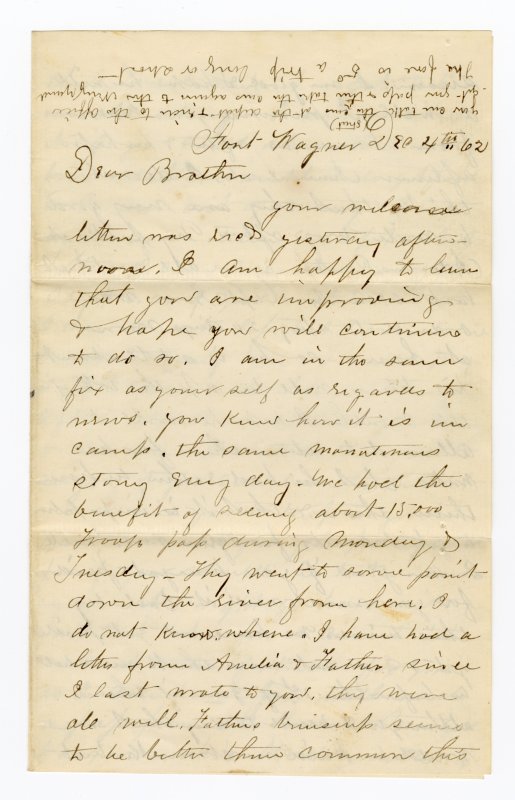 Fort Wagner Dec 4th 62
Dear Brother
your welcome
letter was recd yesterday after-
noon. I am happy to learn
that you are improving
& hope you will continue
to do so. I am in the same
fix as your self as regards to
news. you know how it is in
camp. the same monotonous
story every day - We had the
benefit of seeing about 15,000
Troops pass during Monday &
Tuesday - They went to some point
down the river from here. I
do not know. where. I have had a
letter from Amelia & Father since
I last wrote to you. they were
all well. Fathers buisness seems
to be better than common this
you can take the cars (st) at the depot & ride to the office
get your pass & then take the cars again to the
The fare is 5¢ a trip long or short -